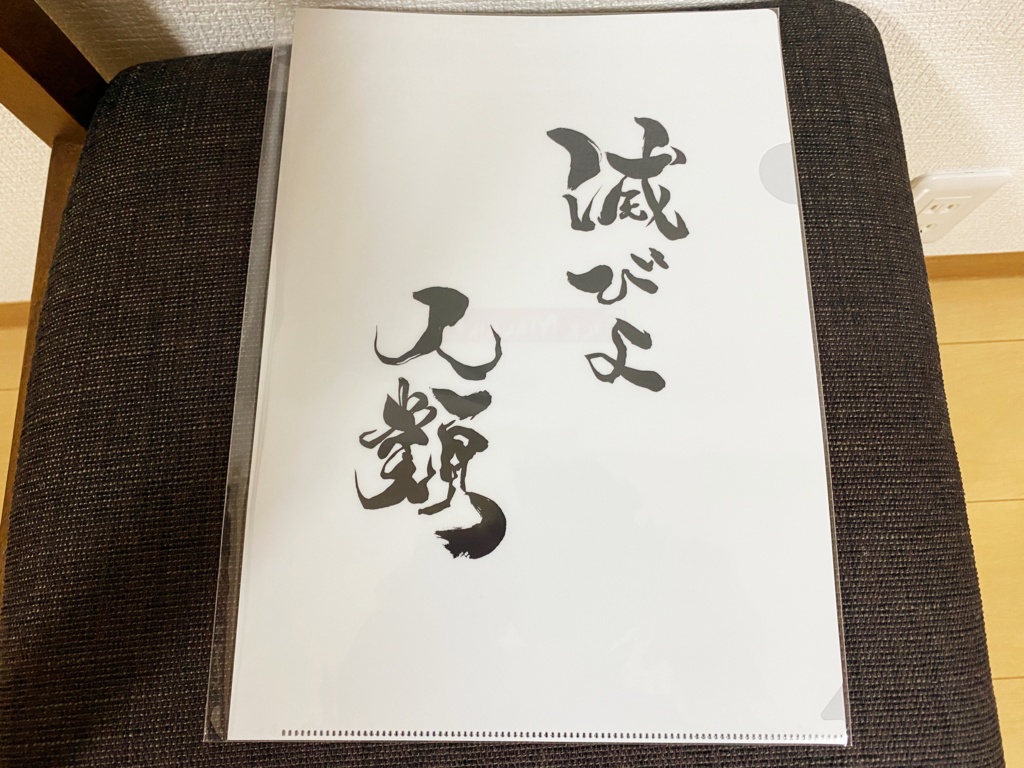 滅びよ
人類